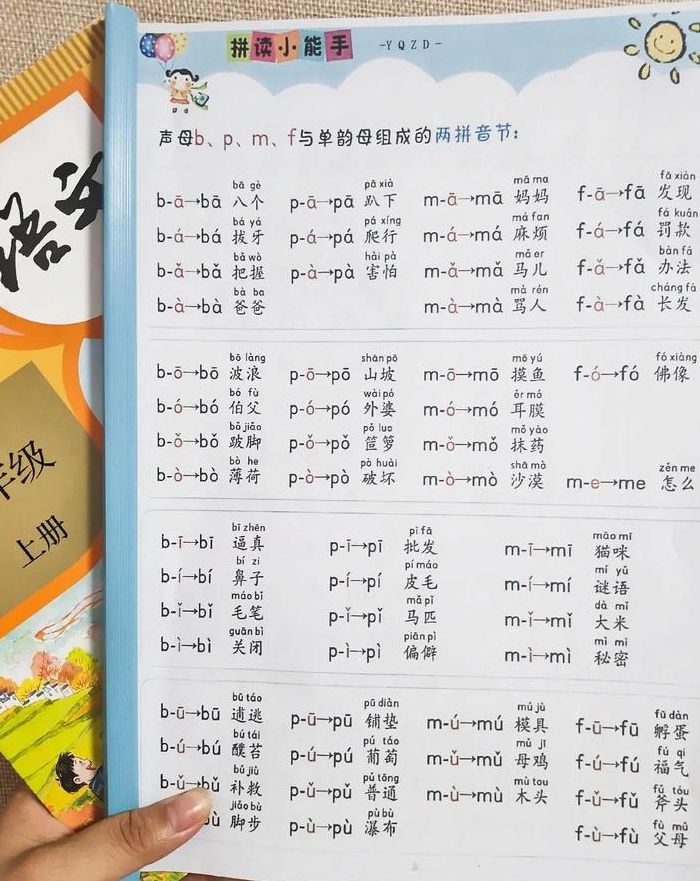 语文
年级
上册
拼读小能手 -YQZD-
声母b、p、m、f与单韵母组成的两拼音节：
bā gè pā xià mā ma fā xiàn
b-ā→bā 八个 p-ā→pā 趴下 m-ā→mā 妈妈 f-ā→fā 发现
bá yá pá xíng má fan fá kuǎn
b-á→bá 拔牙 p-á→pá 爬行 m-á→má 麻烦 f-á→fá 罚款
bǎ wò hài pà mǎ er bàn fǎ
b-ǎ→bǎ 把握 p-à→pà 害怕 m-ǎ→mǎ 马儿 f-ǎ→fǎ 办法
bà ba mà rén cháng fà
b-à→bà 爸爸 m-à→mà 骂人 f-à→fà 长发
bō làng shān pō mō yú fó xiàng
b-ō→bō 波浪 p-ō→pō 山坡 m-ō→mō 摸鱼 f-ó→fó 佛像
bó fù wài pó ěr mó
b-ó→bó 伯父 p-ó→pó 外婆 m-ó→mó 耳膜
bǒ jiǎo pǒ luo mǒ yào
b-ǒ→bǒ 跛脚 p-ǒ→pǒ 笸箩 m-ǒ→mǒ 抹药
bò he pò huài shā mò zěn me
b-ò→bò 薄荷 p-ò→pò 破坏 m-ò→mò 沙漠 m-e→me 怎么
bī zhēn pī fā māo mī
b-ī→bī 逼真 p-ī→pī 批发 m-ī→mī 猫咪
bí zi pí máo mí yǔ
b-í→bí 鼻子 p-í→pí 皮毛 m-í→mí 谜语
máo bǐ mǎ pǐ dà mǐ
b-ǐ→bǐ 毛笔 p-ǐ→pǐ 马匹 m-ǐ→mǐ 大米
guān bì piān pì mì mì
b-ì→bì 关闭 p-ì→pì 偏僻 m-ì→mì 秘密
bū táo pū diàn mú jù fū dàn
b-ū→bū 逋逃 p-ū→pū 铺垫 m-ú→mú 模具 f-ū→fū 孵蛋
bú tái pú táo mǔ jī fú qi
b-ú→bú 醭苔 p-ú→pú 葡萄 m-ǔ→mǔ 母鸡 f-ú→fú 福气
bǔ jiù pǔ tōng mù tou fǔ tóu
b-ǔ→bǔ 补救 p-ǔ→pǔ 普通 m-ù→mù 木头 f-ǔ→fǔ 斧头
jiǎo bù pù bù fù mǔ
bù 脚步 p-ù→pù 瀑布 f-ù→fù 父母